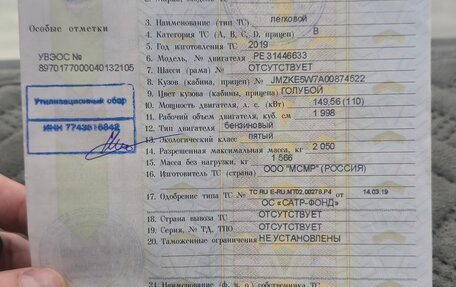 Особые отметки
УВЭОС №
897017700040132105
Утилизационный сбор
ИНН 7743616842
3. Наименование (тип ТС) легковой
4. Категория ТС (A, B, C, D, прицеп) B
5. Год изготовления ТС 2019
6. Модель, № двигателя PE 31446633
7. Шасси (рама) № ОТСУТСТВУЕТ
8. Кузов (кабина, прицеп) № JMZKE5W7A00874522
9. Цвет кузова (кабины, прицепа) ГОЛУБОЙ
10. Мощность двигателя, л. с. (кВт) 149.56 (110)
11. Рабочий объем двигателя, куб. см 1 998
12. Тип двигателя бензиновый
13. Экологический класс пятый
14. Разрешенная максимальная масса, кг 2 050
15. Масса без нагрузки, кг 1 566
16. Изготовитель ТС (страна) ООО "МСМР" (РОССИЯ)
17. Одобрение типа ТС № TC RU E-RU.MT02.00278.P4 от 14.03.19
ОС «САТР-ФОНД»
18. Страна вывоза ТС ОТСУТСТВУЕТ
19. Серия, № ТД, ТПО ОТСУТСТВУЕТ
20. Таможенные ограничения НЕ УСТАНОВЛЕНЫ
21. Наименование (ф. и. о.) собственника ТС